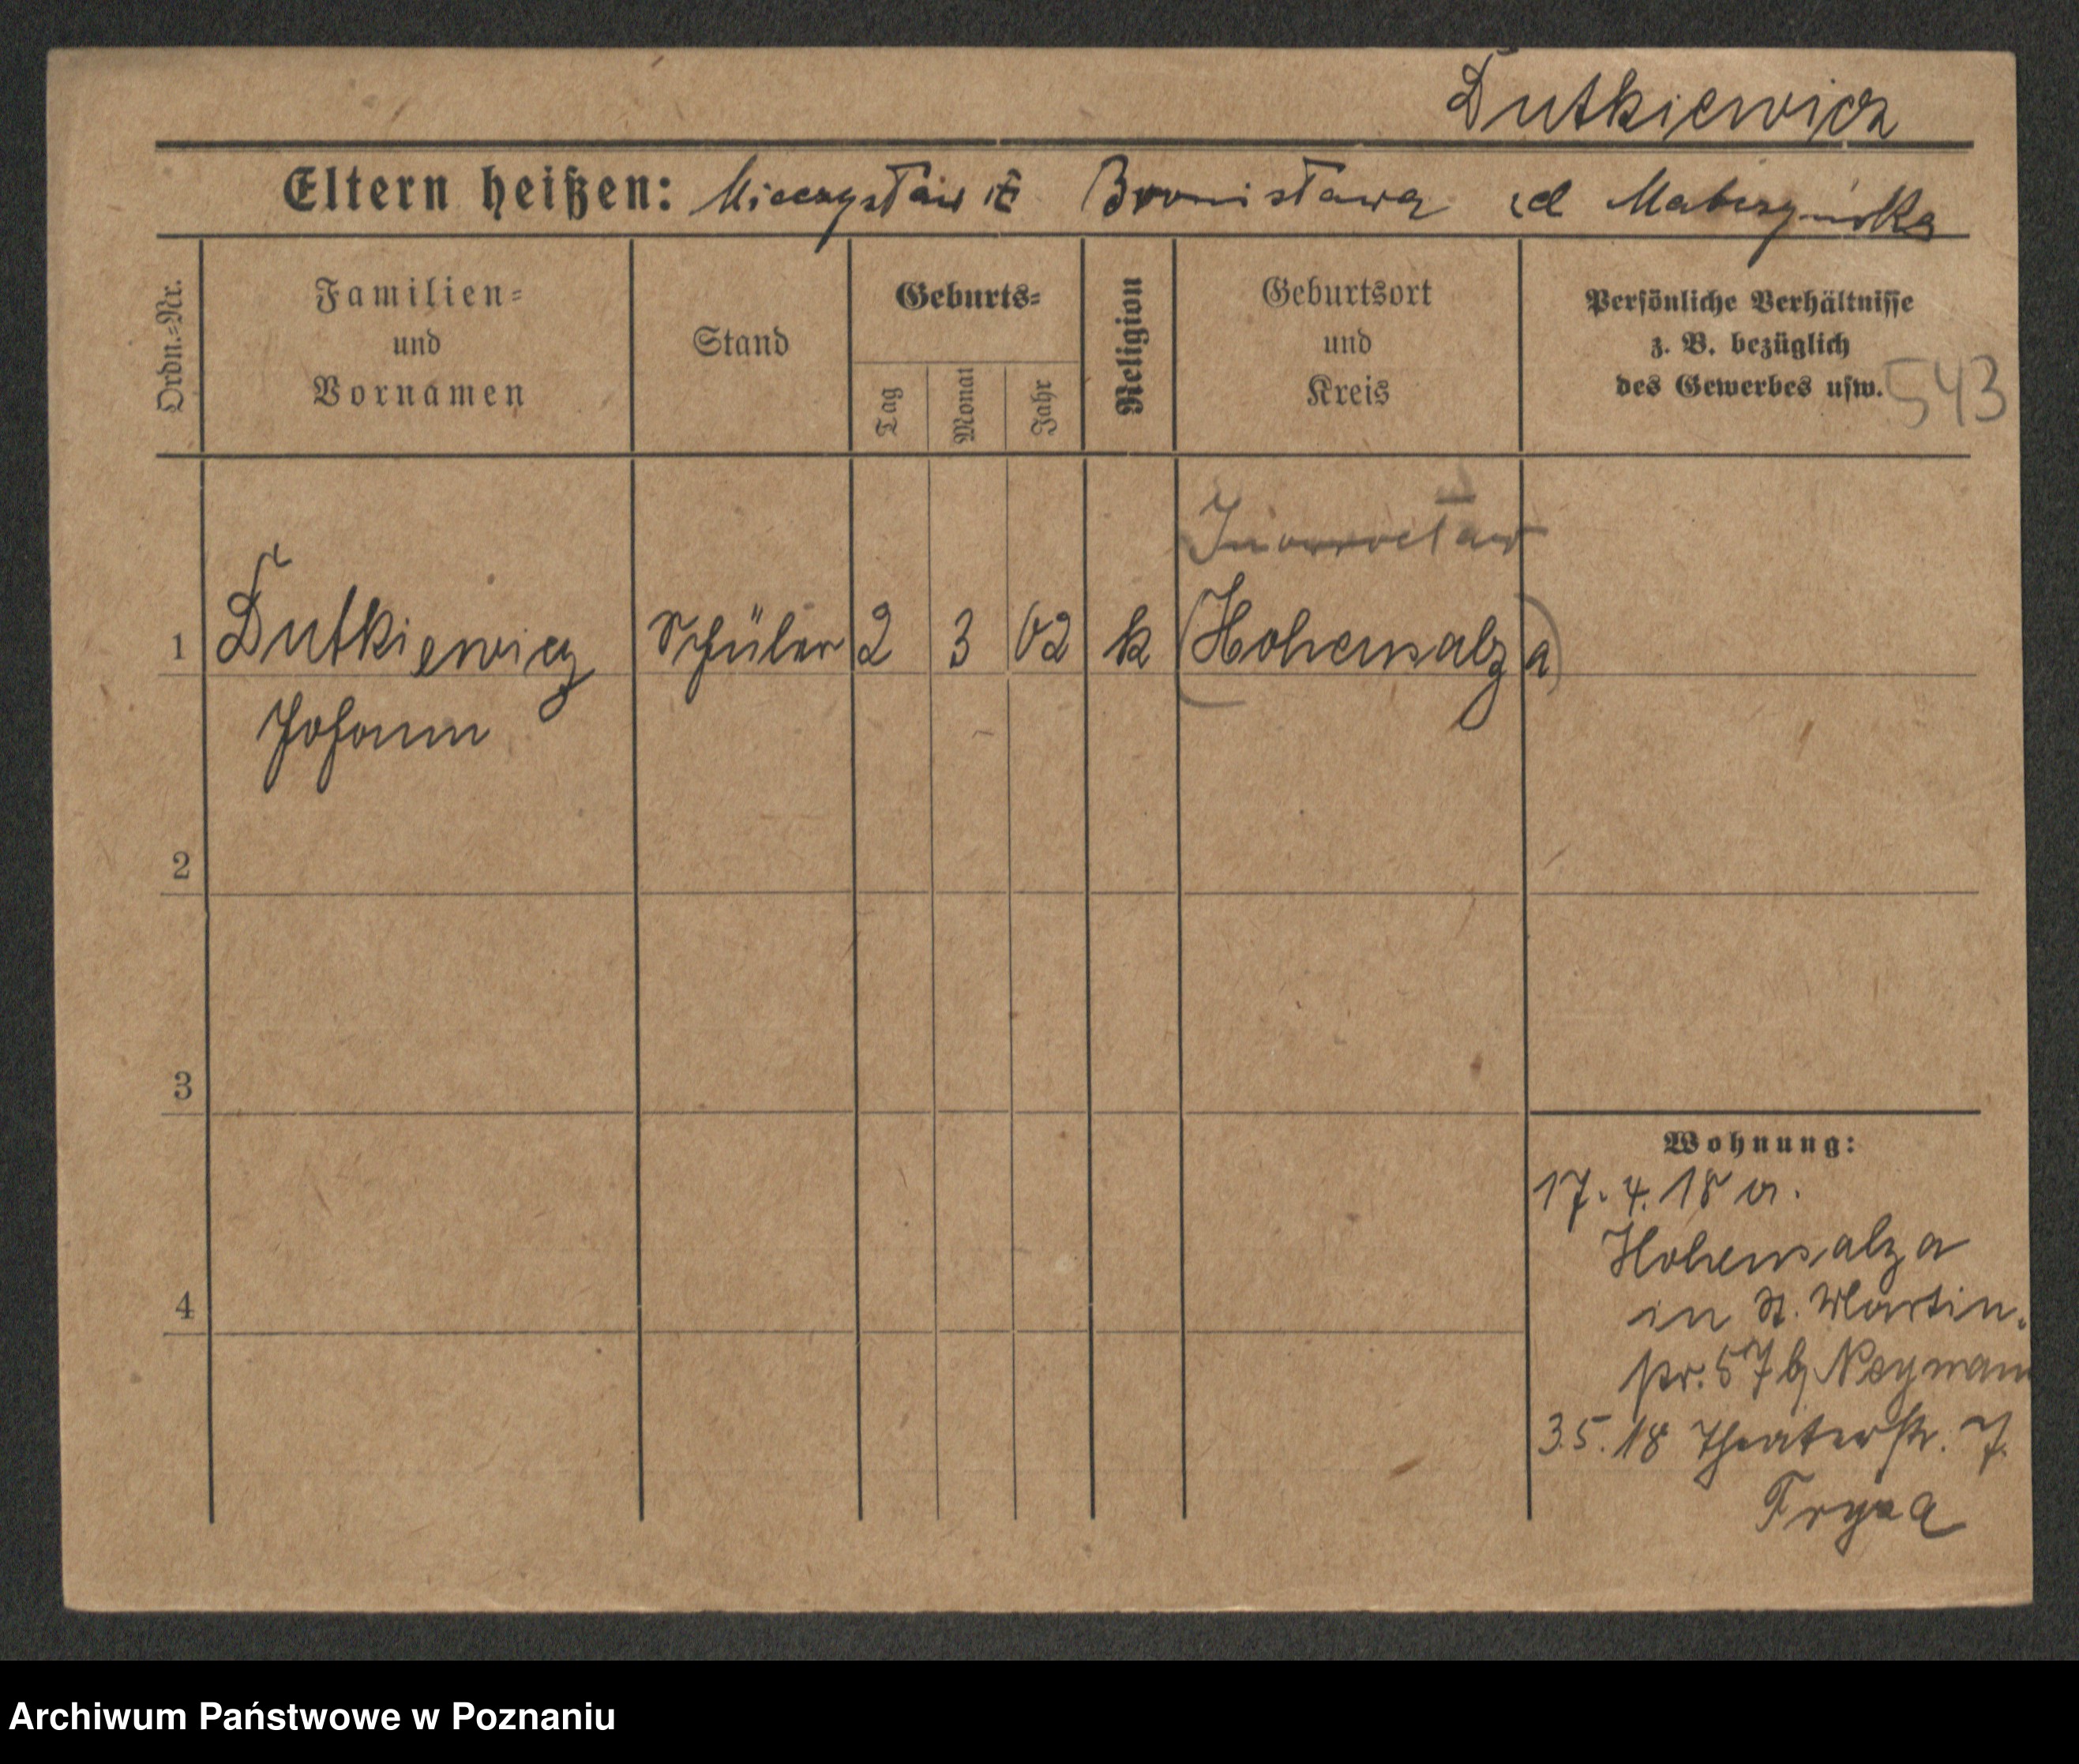 Dutkiewicz
Eltern heißen: Mieczysław Bronisława
Ordn.=Nr.
Familien=
und
Vornamen
Stand
Geburts=
Tag
Monat
Jahr
Religion
Geburtsort
und
Kreis
Persönliche Verhältnisse
z. B. bezüglich
des Gewerbes usw.
543
Inowrocław
1 Dutkiewicz Schüler 2 3 02 k (Hohensalza)
Johann
2
3
4
Wohnung:
17.4.18 v.
Hohensalza
in St. Martin.
str. 57 b/ Neymann
3.5.18 Theaterstr. 7.
Archiwum Państwowe w Poznaniu